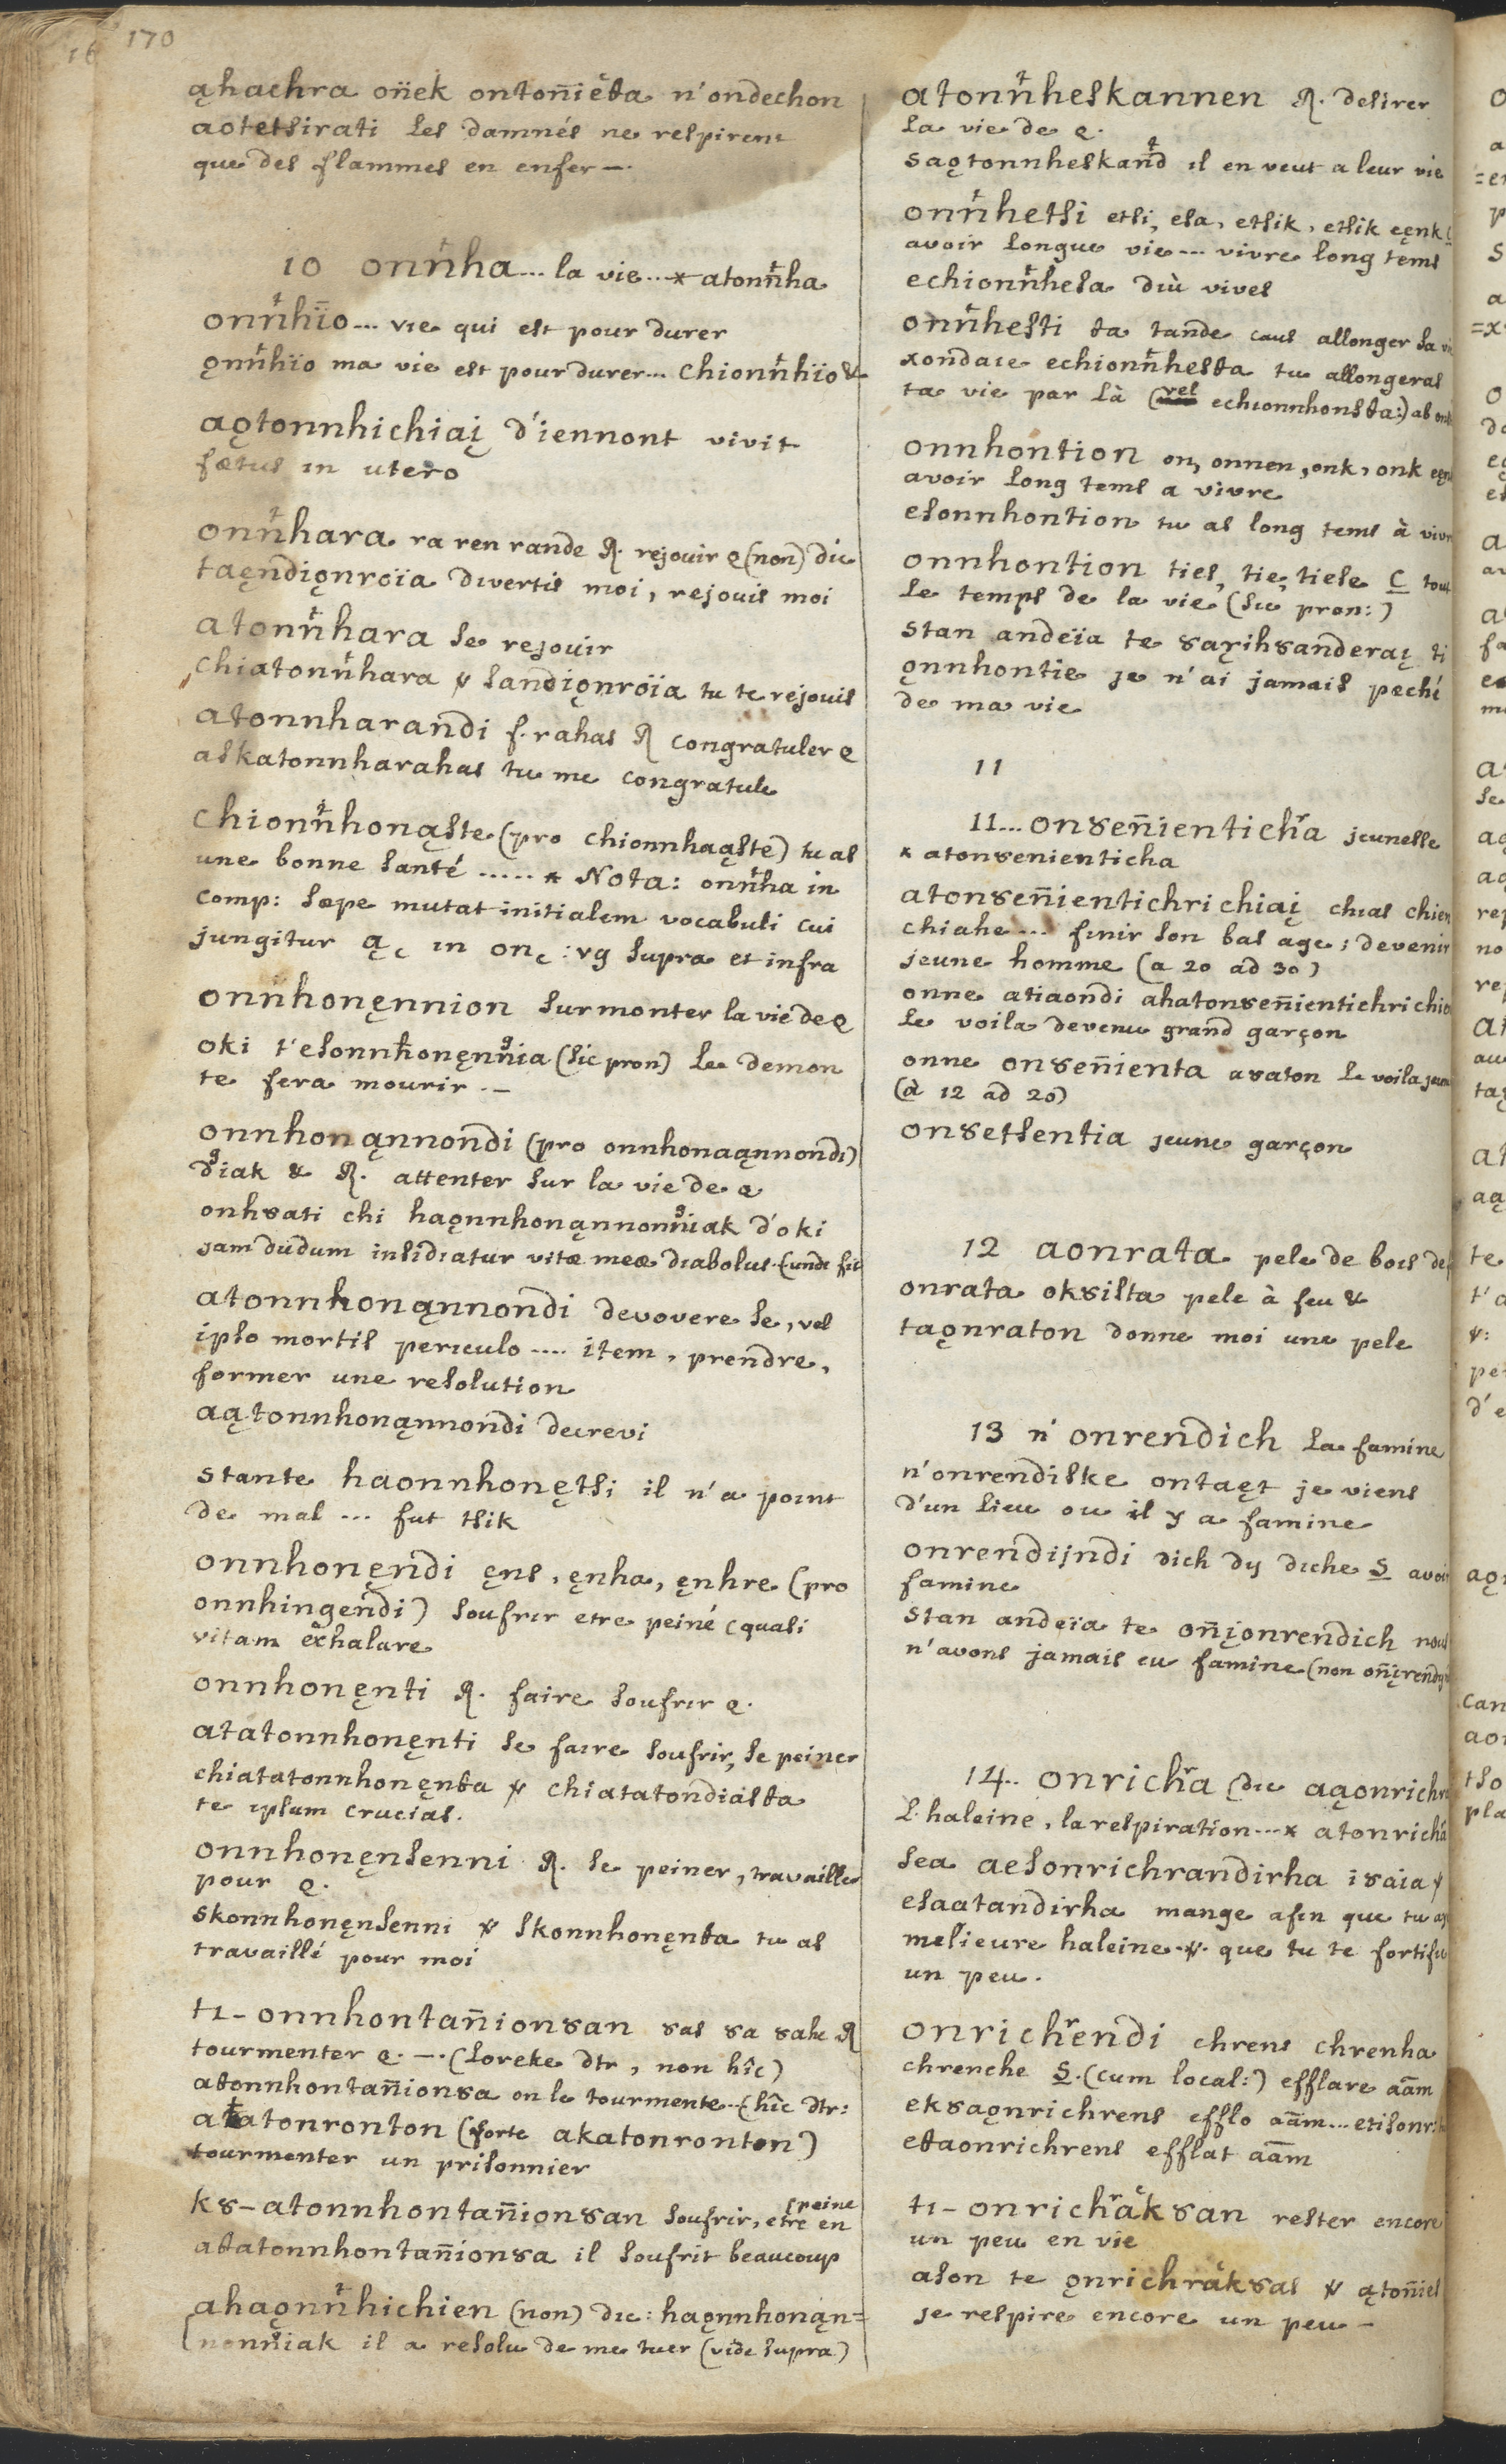 170
ąhachra oñek ontoñiëta n'ondechon
aotetsirati les damnés ne respirent
que des flammes en enfer —.
10 onn̄ha... la vie... * atonn̄ha
onn̄hïo... vie qui est pour durer
ǫnn̄hïo ma vie est pour durer... chionn̄hïo &
aǫtonnhichiaį d'iennont vivit
fœtus in utero
onn̄hara ra ren rande R. rejouir Q (non) dic
taęndiǫnroïa divertis moi, rejouis moi
atonn̄hara se rejouir
chiatonn̄hara ꝟ sandiǫnroïa tu te rejouis
atonnharandi f. rahas R congratuler Q
askatonnharahas tu me congratule
chionn̄honąste (pro chionnhaąste) tu as
une bonne santé ..... * Nota: onn̄ha in
comp: sæpe mutat initialem vocabuli cui
jungitur ą, in on, : vg supra et infra
onnhonęnnion surmonter la vie de Q
oki t'esonnhonęnnia (sic pron) le demon
te fera mourir. —
onnhonąnnondi (pro onnhonaąnnondi)
diak & R. attenter sur la vie de Q
onhȣati chi haǫnnhonąnnonniak d'oki
jam dudum insidiatur vitæ meæ diabolus. (unde fit
atonnhonąnnondi devovere se, vel
ipso mortis periculo .... item, prendre,
former une resolution
aątonnhonąnnondi decrevi
stante haonnhonętsi il n'a point
de mal ... fut tsik
onnhonęndi ęns, ęnha, ęnhre (pro
onnhingendi) soufrir etre peiné (quasi
vitam exhalare
onnhonęnti R. faire soufrir Q.
atatonnhonęnti se faire soufrir, se peiner
chiatatonnhonęnta ꝟ chiatatondiasta
te ipsum crucias.
onnhonęnsenni R. se peiner, travailler
pour Q.
skonnhonęnsenni ꝟ skonnhonęnta tu as
travaillé pour moi
ti-onnhontañionȣan ȣas ȣa ȣahe R
tourmenter Q. —. (Loreke dtr, non hîc)
atonnhontañionȣa on le tourmente.. (hîc dtr:
atatonronton (forte akatonronton)
tourmenter un prisonnier
kȣ-atonnhontañionȣan soufrir, etre en
peine
atatonnhontañionȣa il soufrit beaucoup
ahaǫnn̄hichien (non) dic: haǫnnhonąn=
nonniak il a resolu de me tuer (vide supra)
atonn̄heskannen R. desirer
la vie de Q.
saǫtonnheskand il en veut a leur vie
onn̄hetsi etsi, esa, etsik, etsik
avoir longue vie ... vivre long tems
echionn̄hesa diù vives
onn̄hesti ta tande caus allonger sa
xondaie echionn̄hesta tu allongeras
ta vie par là (vel echionnhonsta:)
onnhontion on, onnen, onk, onk
avoir long tems a vivre
esonnhontion tu as long tems à
onnhontion ties, tie, tiese C
le temps de la vie (sic pron:)
stan andeïa te ȣaȣihȣanderaį ti
ǫnnhontie je n'ai jamais peché
de ma vie
11
11... onȣeñientichra jeunesse
* atonȣenienticha
atonȣeñientichrichiaį chias
chiahe ... finir son bas age; devenir
jeune homme (a 20 ad 30)
onne atiaondi ahatonȣeñientichrichia
le voila devenu grand garçon
onne onȣeñienta aȣaton le voila
(à 12 ad 20)
onȣetsentia jeune garçon
12 aonrata pele de bois
onrata okȣista pele à feu &
taǫnraton donne moi une pele
13 n' onrendich la famine
n'onrendiske ontaęt je viens
d'un lieu ou il y a famine
onrendijndi dich dij diche S avoir
famine
stan andeïa te oñįonrendich nous
n'avons jamais eu famine (non
14.. onrichra (dic aąonrichra
l'haleine, la respiration ... * atonricha
sea aesonrichrandirha iȣaia ꝟ
esaatandirha mange afin que tu
melieure haleine. ꝟ. que tu te
un peu.
onrichrendi chrens chrenha
chrenche S. (cum local:) efflare aām
ekȣaǫnrichrens efflo aām...
etaonrichrens efflat aām
ti-onrichrakȣan rester encore
un peu en vie
ason te ǫnrichrakȣas ꝟ ątoñies
je respire encore un peu —